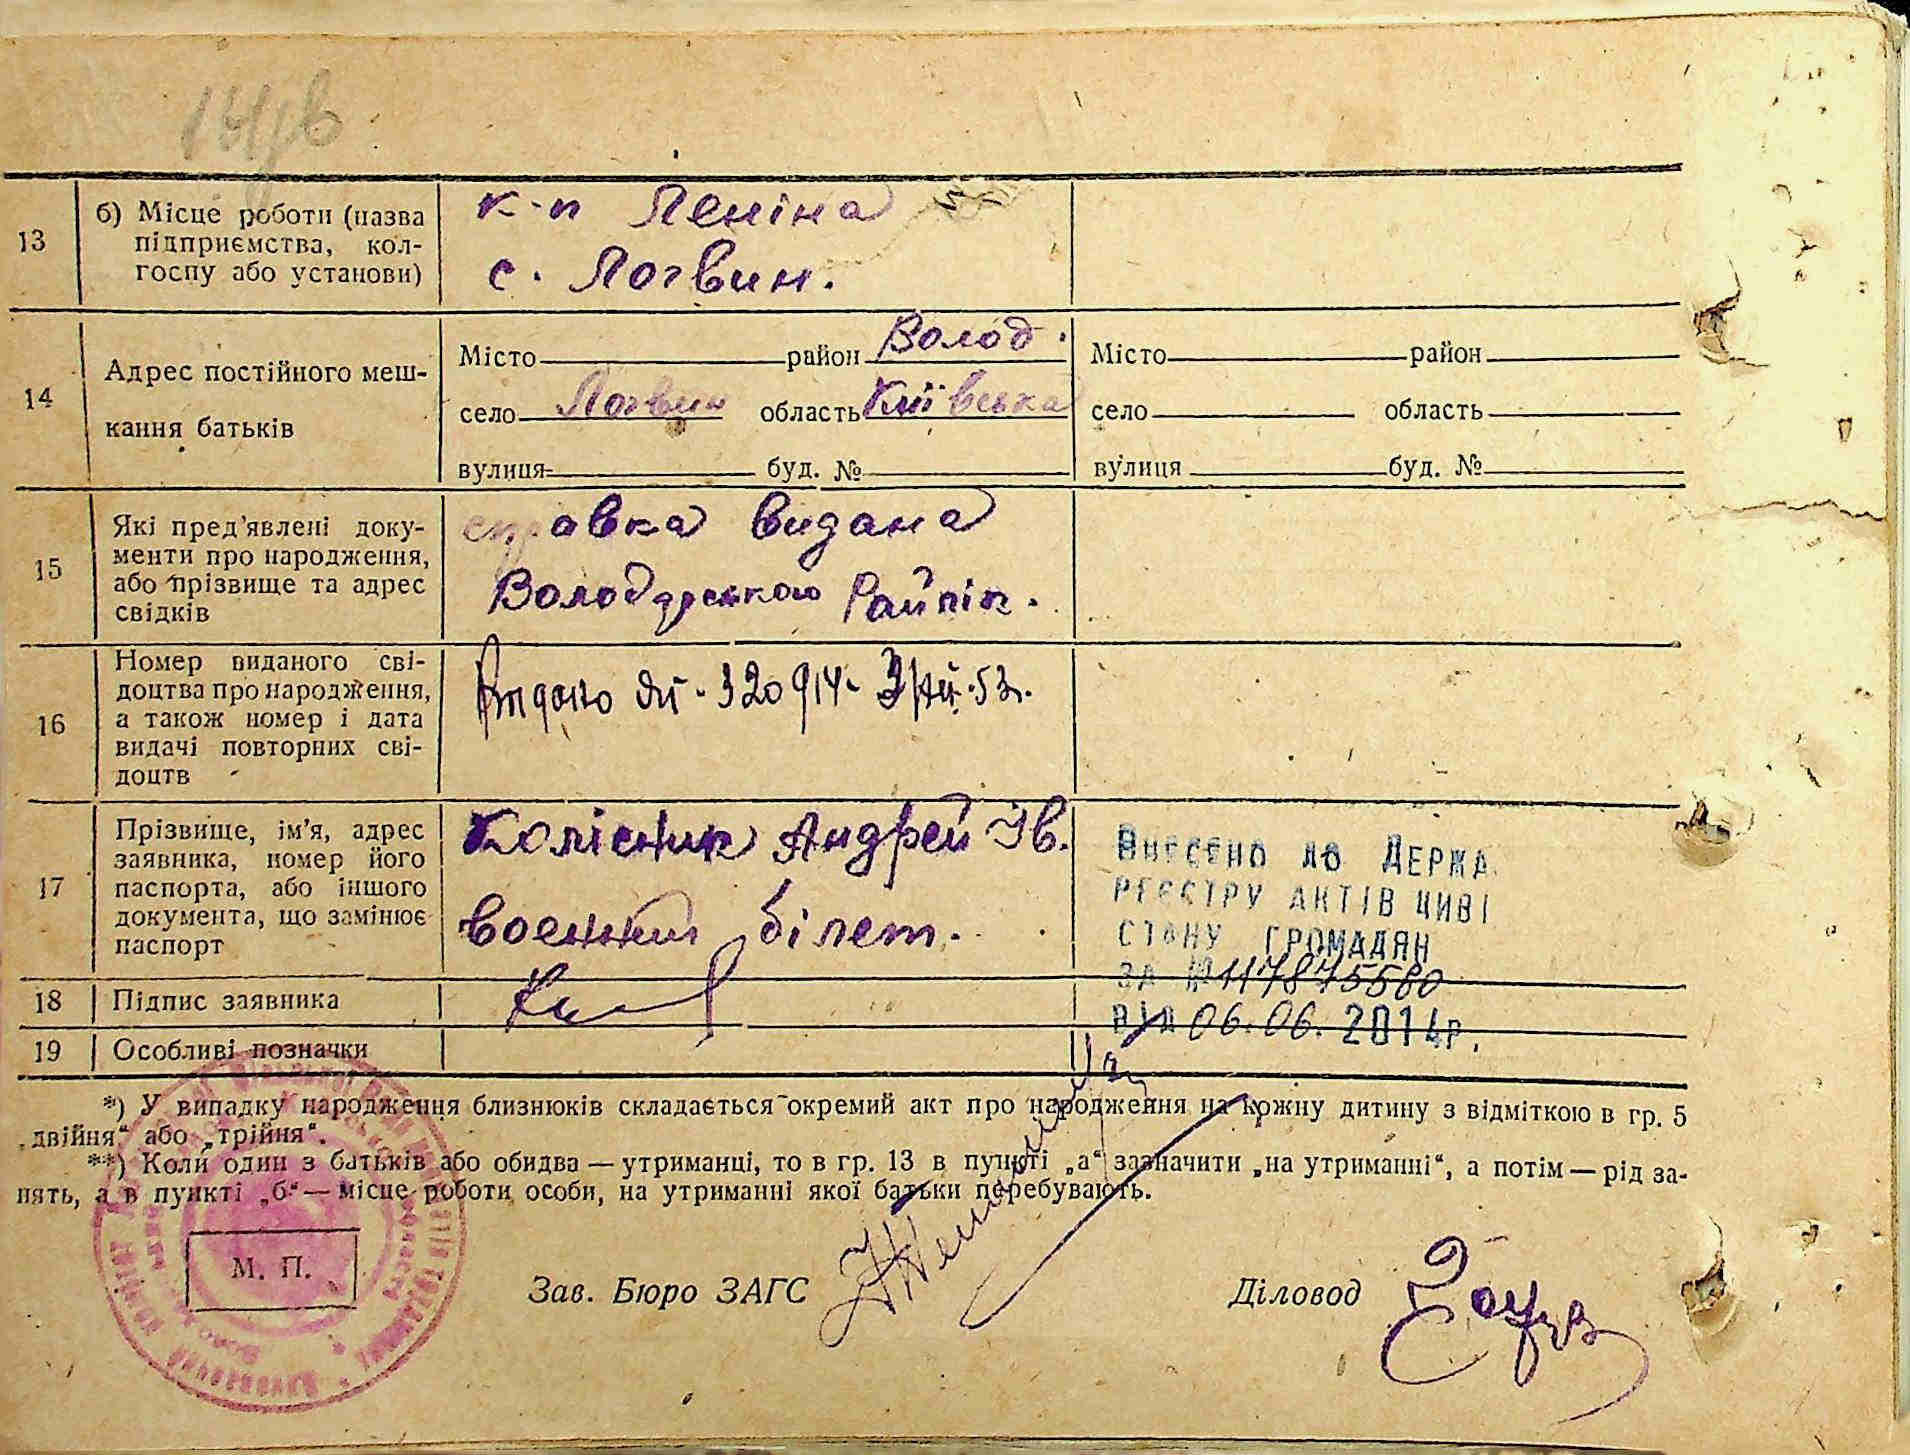 13
б) Місце роботи (назва
підприємства, кол-
госпу або установи)
к-п Леніна
с. Логвин.
14
Адрес постійного меш-
кання батьків
Місто район Волод.
село Логвин область Київська
вулиця буд. №
Місто район
село область
вулиця буд. №
15
Які пред'явлені доку-
менти про народження,
або прізвище та адрес
свідків
справка видана
Володарського
16
Номер виданого сві-
доцтва про народження,
а також номер і дата
видачі повторних сві-
доцтв
320914
17
Прізвище, ім'я, адрес
заявника, номер його
паспорта, або іншого
документа, що замінює
паспорт
Колісник Андрей Ів.
военний білет.
Внесено до Держа
реєстру актів циві
стану громадян
за № 117875580
від 06.06.2014р.
18
Підпис заявника
19
Особливі позначки
*) У випадку народження близнюків складається окремий акт про народження на кожну дитину з відміткою в гр. 5
„двійня“ або „трійня“.
**) Коли один з батьків або обидва — утриманці, то в гр. 13 в пункті „а“ зазначити „на утриманні“, а потім — рід за-
нять, а в пункті „б“ — місце роботи особи, на утриманні якої батьки перебувають.
М. П.
Зав. Бюро ЗАГС
Діловод